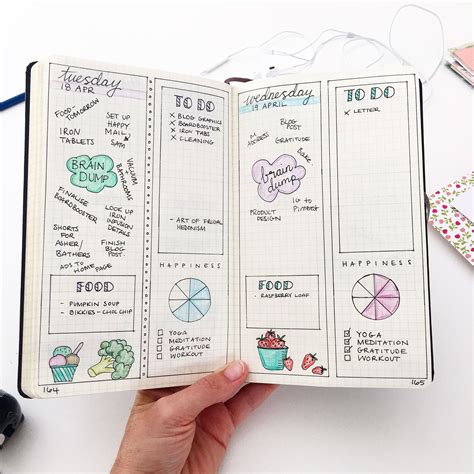 tuesday
18 APR
FOOD-
TOMORROW
SET UP
HAPPY
MAIL
SAM
IRON
TABLETS
BRAIN
DUMP
VACUUM
BATHROOMS
FINALISE
BOARDBOOSTER
LOOK UP
IRON
INFUSION
DETAILS
SHORTS
FOR
ASHER/
BATHERS
FINISH
BLOG
POST
ADS TO HOME
PAGE
FOOD
- PUMPKIN SOUP
- BIKKIES - CHOC CHIP
164
TO DO
X BLOG GRAPHICS
X BOARDBOOSTER
X IRON TABS
X CLEANING
- ART OF FRUGAL
HEDONISM
HAPPINESS
YOGA
MEDITATION
GRATITUDE
WORKOUT
wednesday
19 APRIL
ADDRESS
BLOG
POST
GRATITUDE
Bake
brain
dump
PRODUCT
DESIGN
IG to
Pinterest
FOOD
- RASPBERRY LOAF
TO DO
X LETTER
HAPPINESS
YOGA
MEDITATION
GRATITUDE
WORKOUT
165